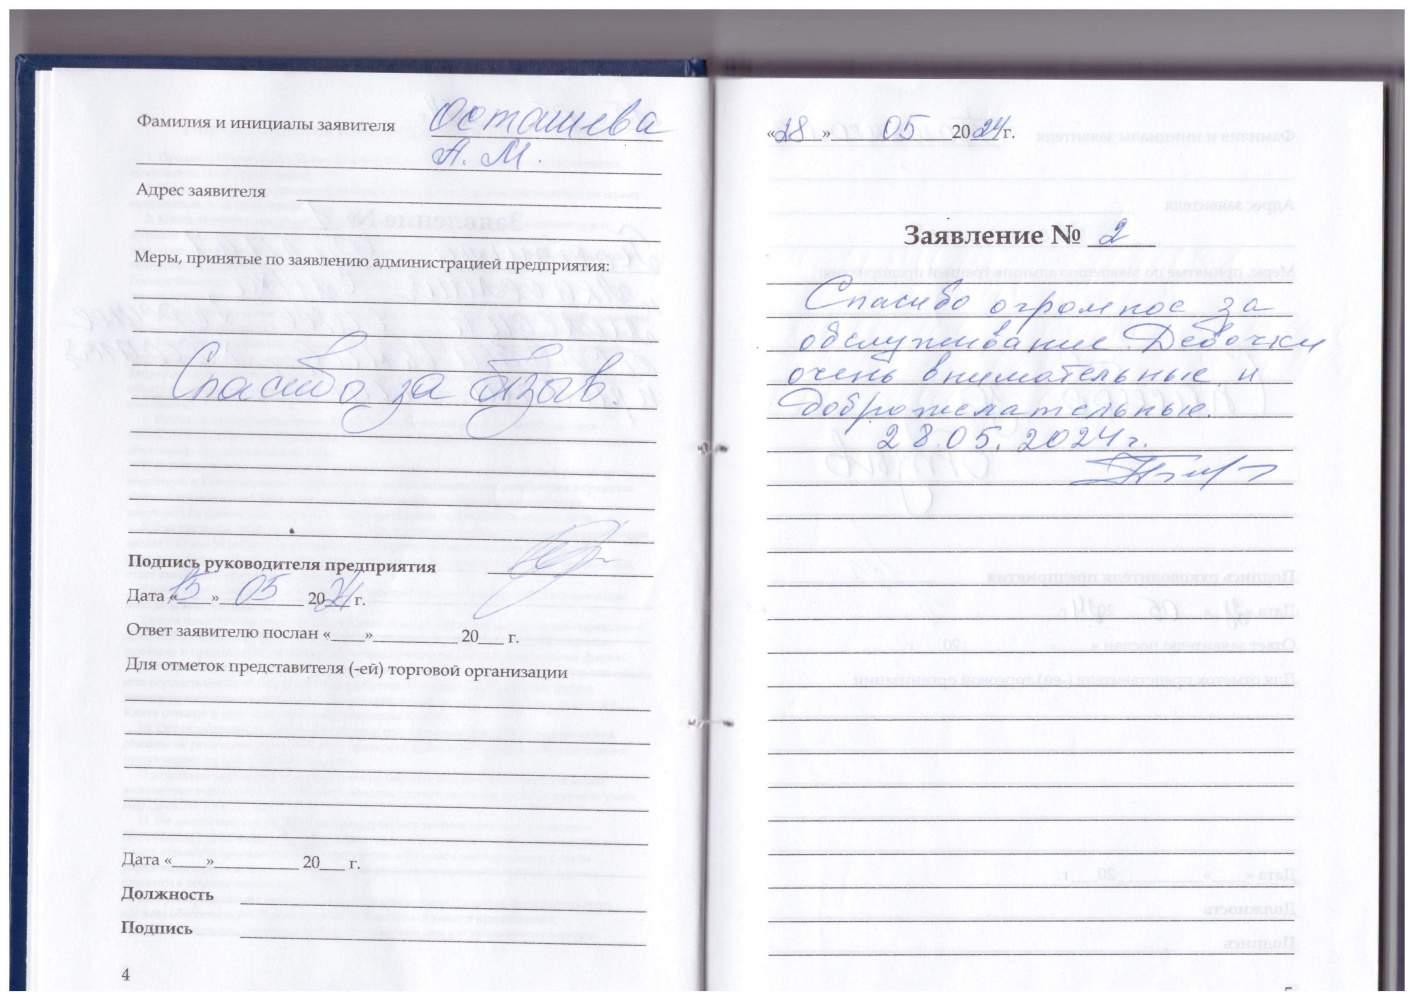 Фамилия и инициалы заявителя Осташева
А. М.
Адрес заявителя
Меры, принятые по заявлению администрацией предприятия:
Спасибо за отзыв.
Подпись руководителя предприятия
Дата «15» 05 2024 г.
Ответ заявителю послан «____»__________ 20___ г.
Для отметок представителя (-ей) торговой организации
Дата «____»__________ 20___ г.
Должность
Подпись
4
«28» 05 2024 г.
Заявление № 2
Спасибо огромное за
обслуживание. Девочки
очень внимательные и
доброжелательные.
28.05.2024г.